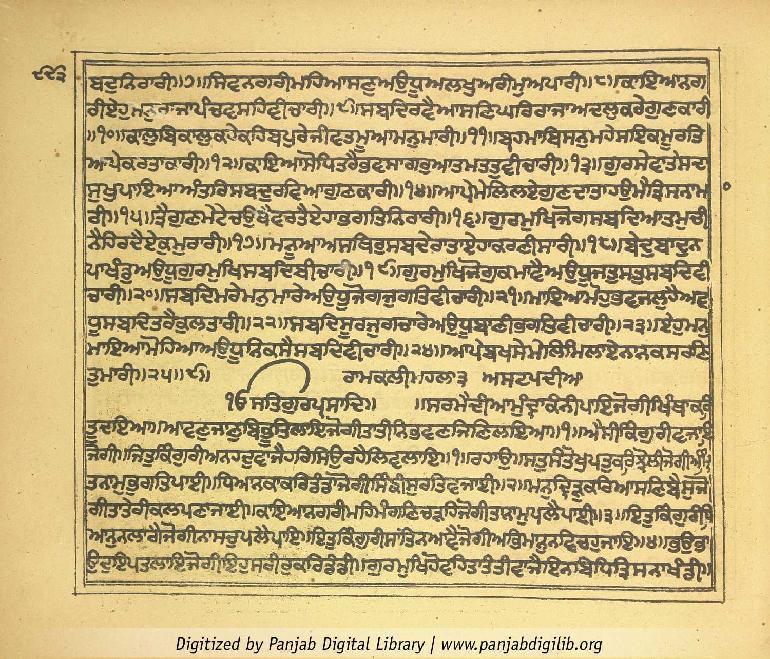 ਬਦੁਨਿਰਾਰੀ॥੭॥ਸਿਵਨਗਰੀਮਹਿਆਸਣੁਅਉਧੂਅਲਖੁਅਗੰਮੁਅਪਾਰੀ॥੮॥ਕਾਇਆਨਗ
ਰੀਏਹੁਮਨੁਰਾਜਾਪੰਚਵਸਹਿਵੀਚਾਰੀ॥੯॥ਸਬਦਿਰਵੈਆਸਣਿਘਰਿਰਾਜਾਅਦਲੁਕਰੇਗੁਣਕਾਰੀ
॥੧੦॥ਕਾਲੁਬਿਕਾਲੁਕਹੇਕਹਿਬਪੁਰੇਜੀਵਤਮੂਆਮਨੁਮਾਰੀ॥੧੧॥ਬ੍ਰਹਮਾਬਿਸਨੁਮਹੇਸਇਕਮੂਰਤਿ
ਆਪੇਕਰਤਾਕਾਰੀ॥੧੨॥ਕਾਇਆਸੋਧਿਤਰੈਭਵਸਾਗਰੁਆਤਮਤਤੁਵੀਚਾਰੀ॥੧੩॥ਗੁਰਸੇਵਾਤੇਸਦਾ
ਸੁਖੁਪਾਇਆਅੰਤਰਿਸਬਦੁਰਵਿਆਗੁਣਕਾਰੀ॥੧੪॥ਆਪੇਮੇਲਿਲਏਗੁਣਦਾਤਾਹਉਮੈਤ੍ਰਿਸਨਾਮਾ
ਰੀ॥੧੫॥ਤ੍ਰੈਗੁਣਮੇਟੇਚਉਥੈਵਰਤੈਏਹਾਭਗਤਿਨਿਰਾਰੀ॥੧੬॥ਗੁਰਮੁਖਿਜੋਗਸਬਦਿਆਤਮੁਚੀ
ਨੈਹਿਰਦੈਏਕੁਮੁਰਾਰੀ॥੧੭॥ਮਨੂਆਅਸਥਿਰੁਸਬਦੇਰਾਤਾਏਹਾਕਰਣੀਸਾਰੀ॥੧੮॥ਬੇਦੁਬਾਦੁਨ
ਪਾਖੰਡੁਅਉਧੂਗੁਰਮੁਖਿਸਬਦਿਬੀਚਾਰੀ॥੧੯॥ਗੁਰਮੁਖਿਜੋਗੁਕਮਾਵੈਅਉਧੂਜਤੁਸਤੁਸਬਦਿਵੀ
ਚਾਰੀ॥੨੦॥ਸਬਦਿਮਰੇਮਨੁਮਾਰੇਅਉਧੂਜੋਗਜੁਗਤਿਵੀਚਾਰੀ॥੨੧॥ਮਾਇਆਮੋਹੁਭਵਜਲੁਹੈਅਵ
ਧੂਸਬਦਿਤਰੈਕੁਲਤਾਰੀ॥੨੨॥ਸਬਦਿਸੂਰਜੁਗਚਾਰੇਅਉਧੂਬਾਣੀਭਗਤਿਵੀਚਾਰੀ॥੨੩॥ਏਹੁਮਨੁ
ਮਾਇਆਮੋਹਿਆਅਉਧੂਨਿਕਸੈਸਬਦਿਵੀਚਾਰੀ॥੨੪॥ਆਪੇਬਖਸੇਮੇਲਿਮਿਲਾਏਨਾਨਕਸਰਣਿ
ਤੁਮਾਰੀ॥੨੫॥੯॥ ਰਾਮਕਲੀਮਹਲਾ੩ ਅਸਟਪਦੀਆ
ੴਸਤਿਗੁਰਪ੍ਰਸਾਦਿ॥ ॥ਸਰਮੈਦੀਆਮੁੰਦ੍ਰਾਕੰਨੀਪਾਇਜੋਗੀਖਿੰਥਾਕਰਿ
ਤੂਦਇਆ॥ਆਵਣੁਜਾਣੁਬਿਭੂਤਿਲਾਇਜੋਗੀਤਾਤੀਨਿਭਵਣਜਿਣਿਲਇਆ॥੧॥ਐਸੀਕਿੰਗੁਰੀਵਜਾਇ
ਜੋਗੀ॥ਜਿਤੁਕਿੰਗੁਰੀਅਨਹਦੁਵਾਜੈਹਰਿਸਿਉਰਹੈਲਿਵਲਾਇ॥੧॥ਰਹਾਉ॥ਸਤੁਸੰਤੋਖੁਪਤੁਕਰਿਝੋਲੀਜੋਗੀਅੰਮ੍ਰਿ
ਤਨਾਮੁਭੁਗਤਿਪਾਈ॥ਧਿਆਨਕਾਕਰਿਡੰਡਾਜੋਗੀਸਿੰਙੀਸੁਰਤਿਵਜਾਈ॥੨॥ਮਨੁਦ੍ਰਿੜੁਕਰਿਆਸਣਿਬੈਸੁਜੋ
ਗੀਤਾਤੇਰੀਕਲਪਣਾਜਾਈ॥ਕਾਇਆਨਗਰੀਮਹਿਮੰਗਣਿਚੜਹਿਜੋਗੀਤਾਨਾਮੁਪਲੈਪਾਈ॥੩॥ਇਤੁਕਿੰਗੁਰੀਧਿ
ਆਨੁਨਲਾਗੈਜੋਗੀਨਾਸਚੁਪਲੈਪਾਇ॥ਇਤੁਕਿੰਗੁਰੀਸਾਂਤਿਨਆਵੈਜੋਗੀਅਭਿਮਾਨੁਨਵਿਚਹੁਜਾਇ॥੪॥ਭਉਭਾ
ਉਦੁਇਪਤਲਾਇਜੋਗੀਇਹੁਸਰੀਰੁਕਰਿਡੰਡੀ॥ਗੁਰਮੁਖਿਹੋਵਹਿਤਾਤੰਤੀਵਾਜੈਇਨਬਿਧਿਤ੍ਰਿਸਨਾਖੰਡੀ॥
Digitized by Panjab Digital Library | www.panjabdigilib.org